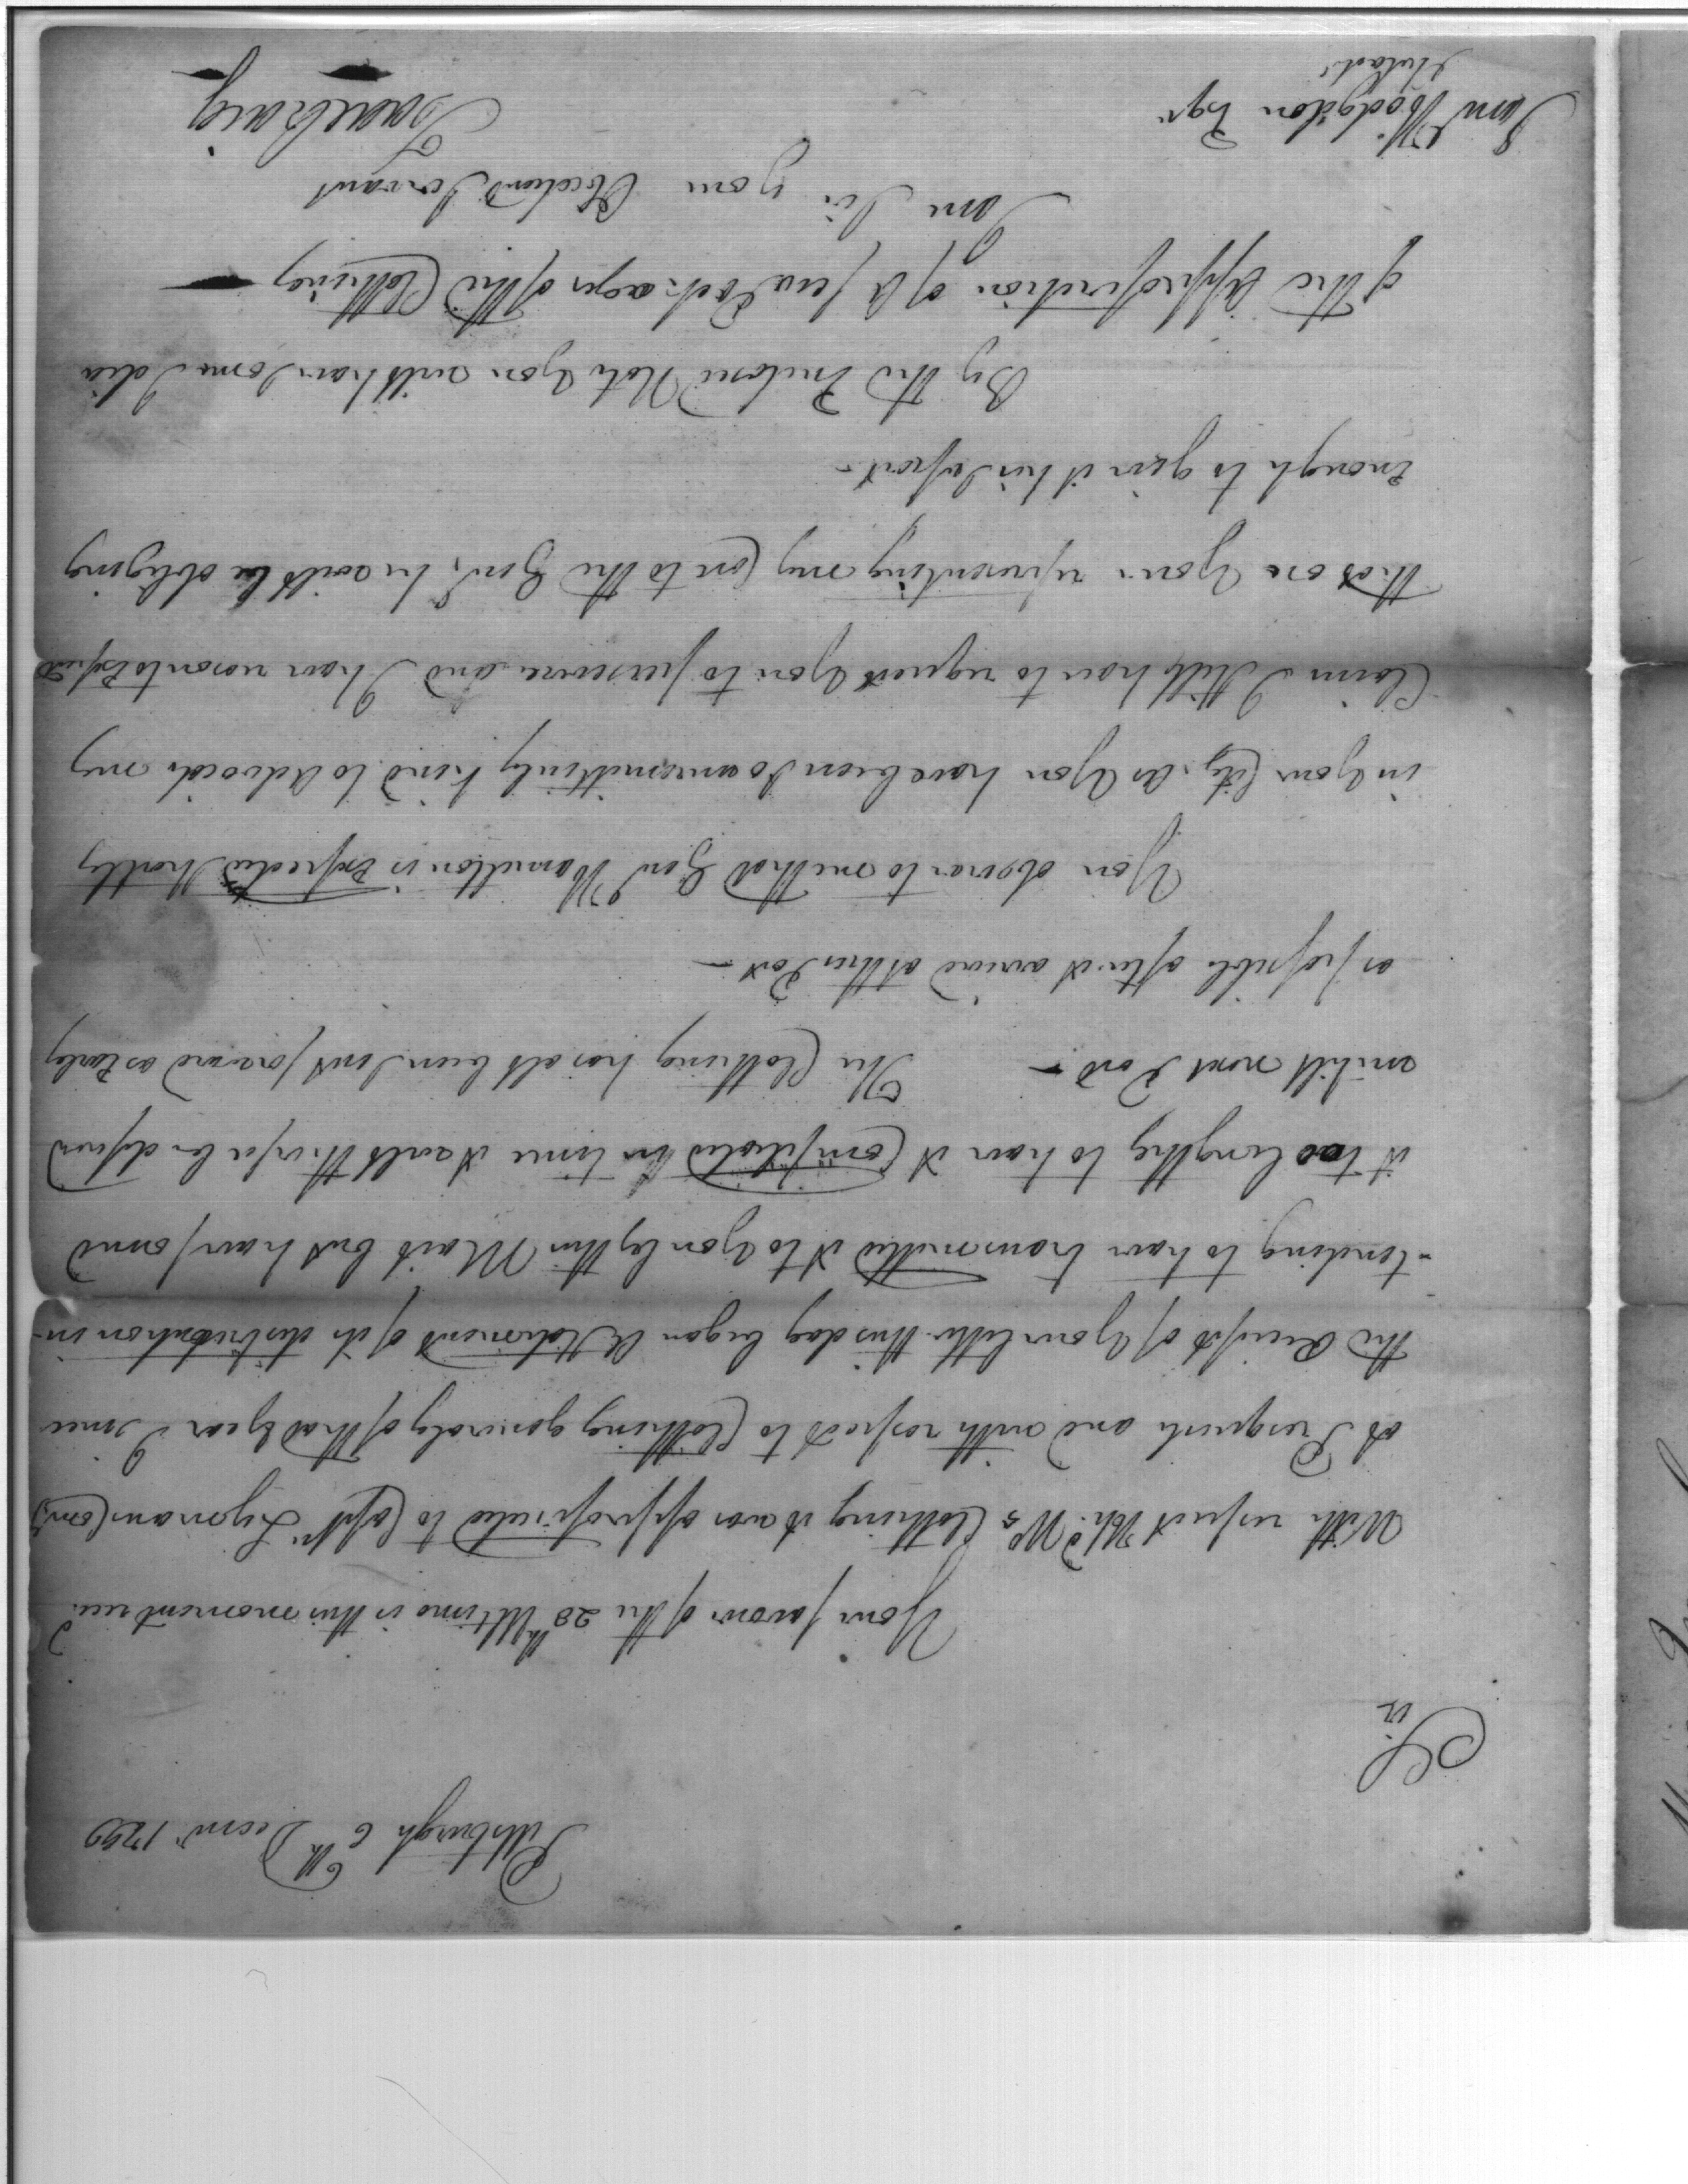 Pittsburgh 6th Decemr. 1799
Sir
Your favour of the 28th Ultimo is this moment recd.
With respect Clothing it was appropriated to Captn. Lymans Comy.
at Presquile and with respect to Clothing generaly of that Year I since
the Receipt of Your letter this day began A Statement of its distribution in-
-tending to have transmitted it to You by this Mail but have found
it too lengthy to have it Compleated in time it will therefore be defered
untill next Post — The Clothing has all been Sent forward as Early
as possible after it arived at this Post —
You observe to me that Genl. Hamilton is Expected shortly
in Your City. As You have been So unremittinly kind to Advocate my
Claim I Still have to request You to persevere and I have reason to Expect
that on Your representing my Case to the Genl. he will be obliging
Enough to give it his Suport —
By the Enclosed Note You will have Some Idea
of the appropriation of A few Packages of the Clothing —
I am Sir Your Obedient Servant
Isaac Craig
Saml Hodgdon Esqr.